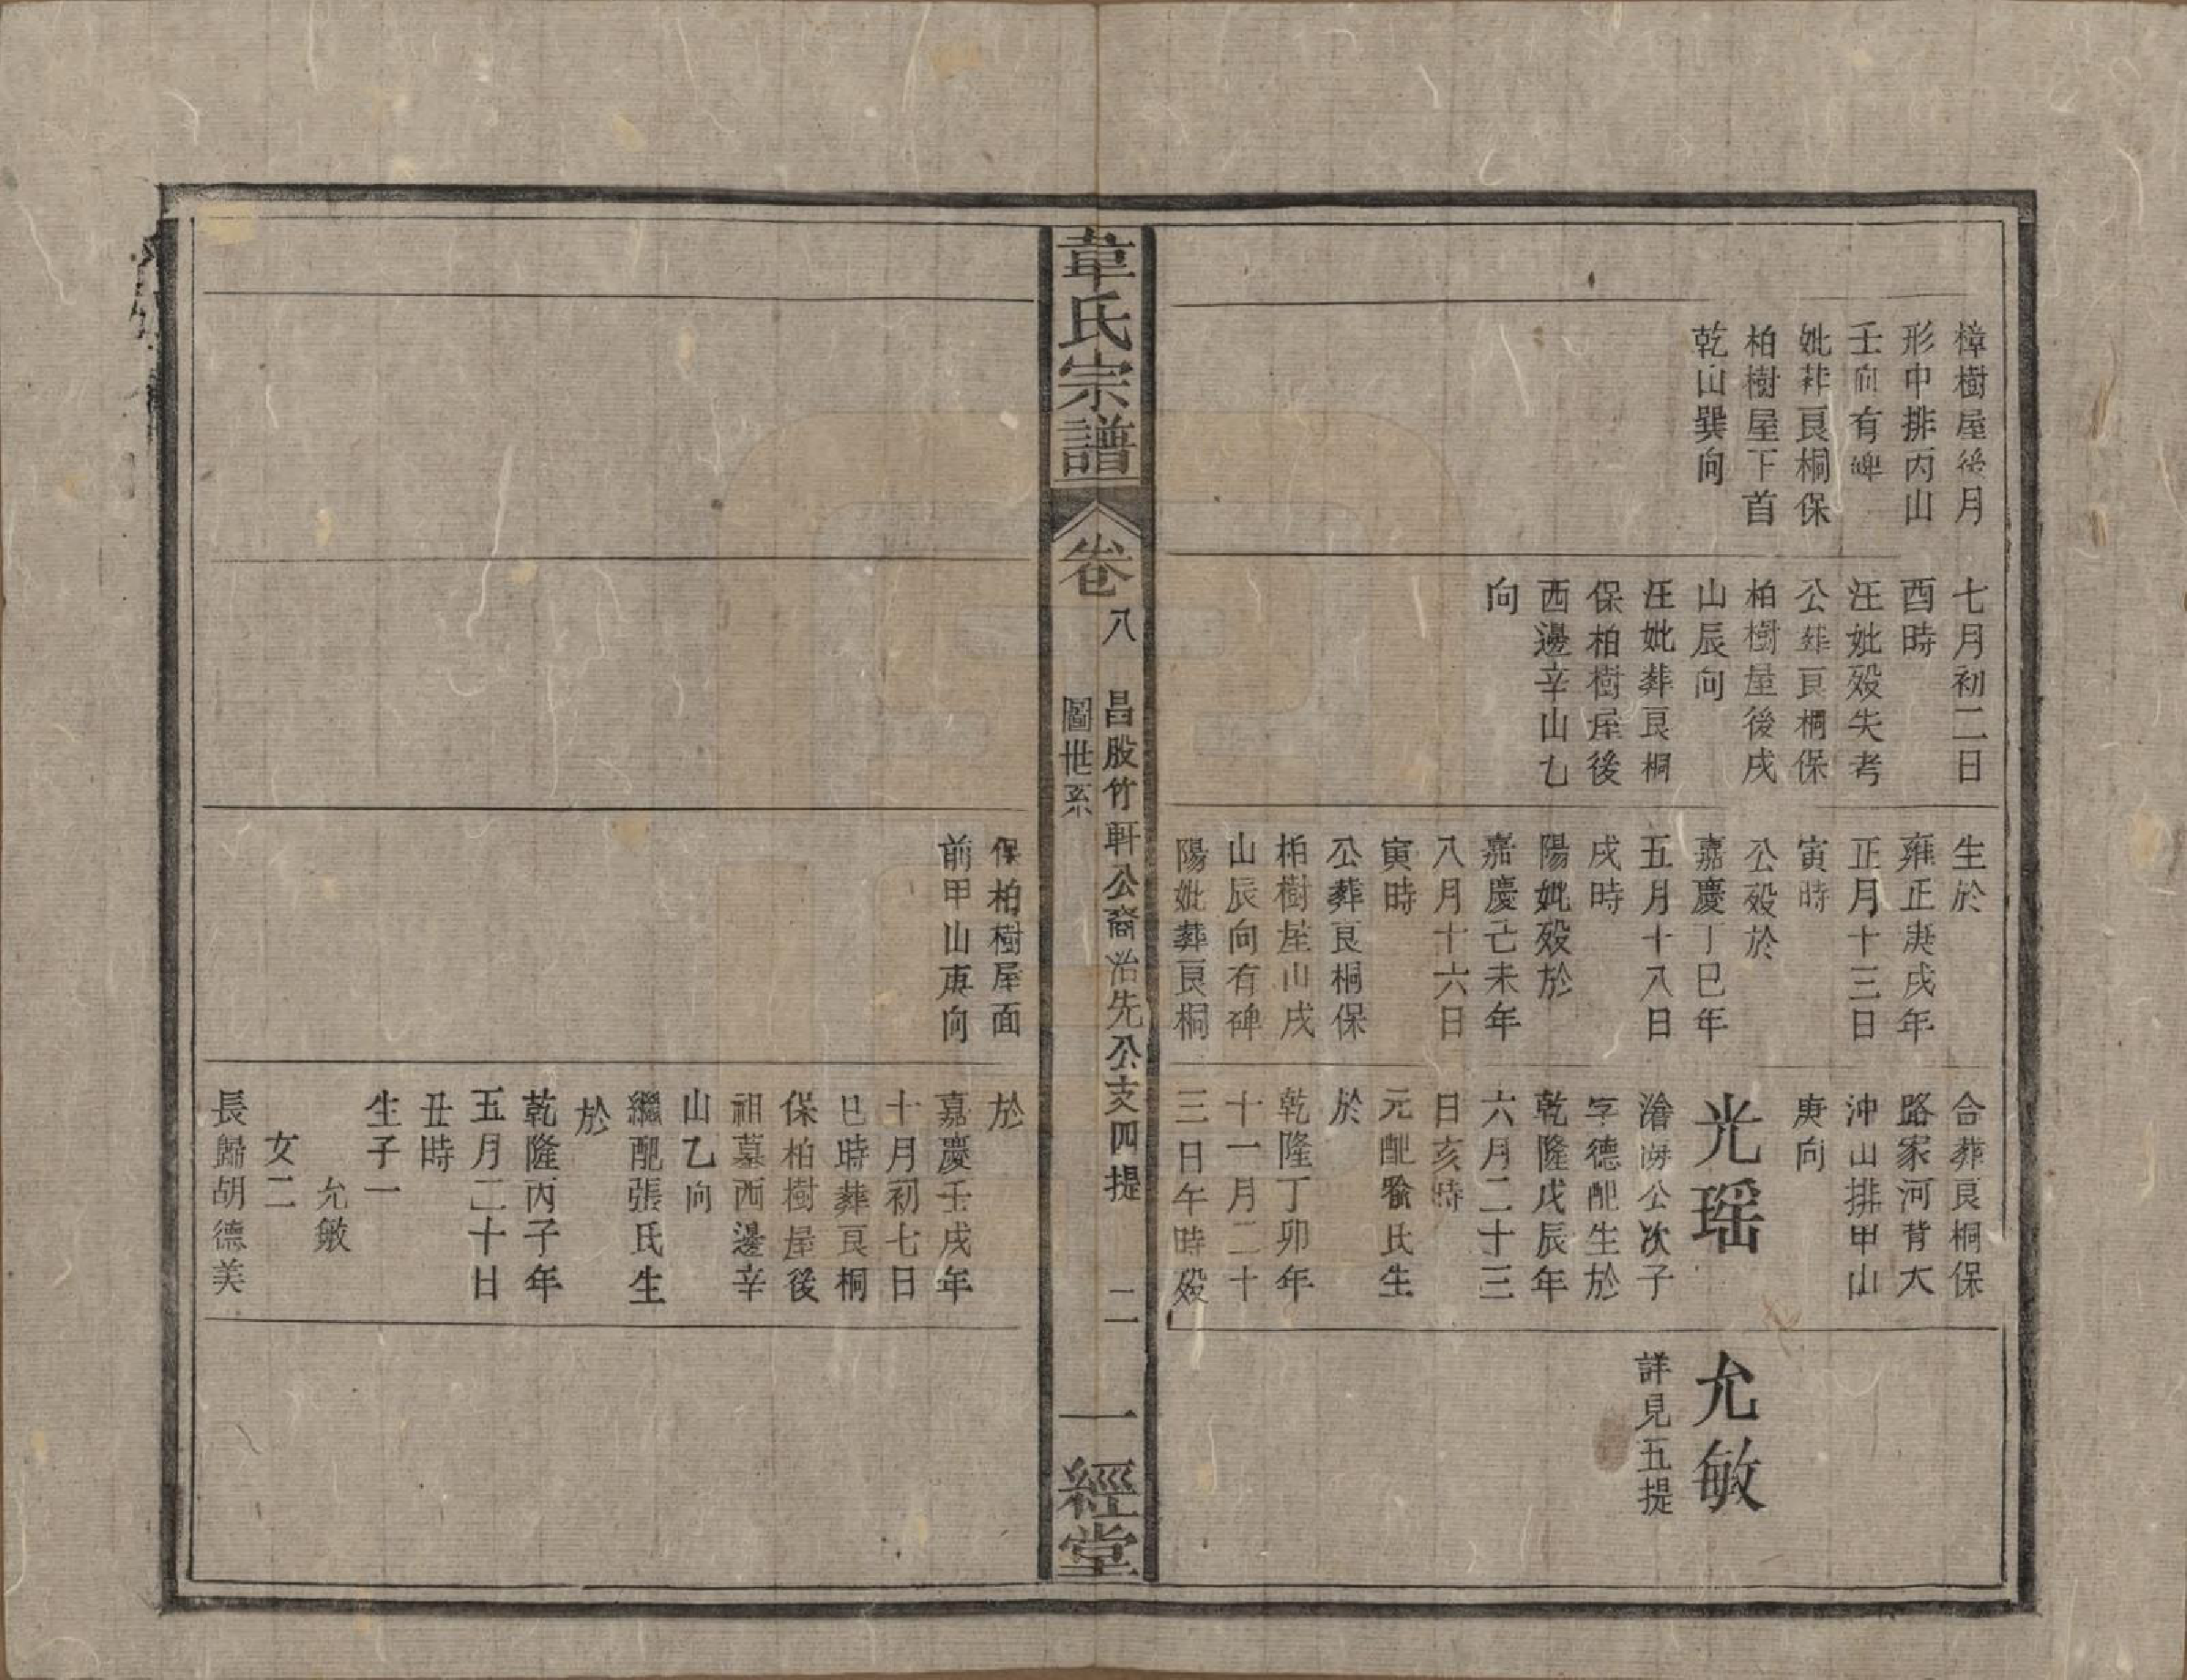 樟樹屋後月
形中排丙山
壬向有碑
妣葬良桐保
柏樹屋下首
乾山巽向
七月初二日
酉時
汪妣歿失考
公葬良桐保
柏樹屋後戌
山辰向
汪妣葬良桐
保柏樹屋後
西邊辛山乙
向
生於
雍正庚戌年
正月十三日
寅時
公歿於
嘉慶丁巳年
五月十八日
戌時
陽妣歿於
嘉慶己未年
八月十六日
寅時
公葬良桐保
柏樹屋山戌
山辰向有碑
陽妣葬良桐
合葬良桐保
路家河背大
沖山排甲山
庚向
光瑶
滄海公次子
字德配生於
乾隆戊辰年
六月二十三
日亥時
元配喻氏生
於
乾隆丁卯年
十一月二十
三日午時歿
允敏
詳見五提
韋氏宗譜
卷八
昌股竹軒公裔治先公支四提
圖世系
二
一經堂
保柏樹屋面
前甲山庚向
於
嘉慶壬戌年
十月初七日
巳時葬良桐
保柏樹屋後
祖墓西邊辛
山乙向
繼配張氏生
於
乾隆丙子年
五月二十日
丑時
生子一
允敏
女二
長歸胡德美